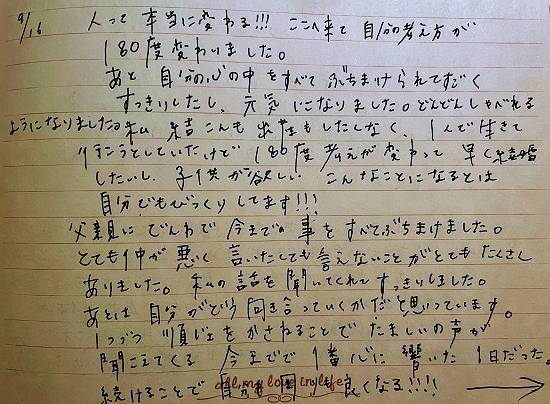 9/16
人って本当に変わる!!! ここへ来て自分の考え方が
180度変わりました。
あと自分の心の中をすべてぶちまけられてすごく
すっきりしたし、元気になりました。どんどんしゃべれる
ようになりました。私結こんも出産もしたくなく、1人で生きて
行こうとしていたけど180度考えが変わって早く結婚
したいし、子供が欲しい こんなことになるとは
自分でもびっくりしてます!!!
父親にでんわで今までの事をすべてぶちまけました。
とても仲が悪く言いたくても言えないことがとてもたくさん
ありました。私の話を聞いてくれてすっきりしました。
あとは自分がどう向き合っていくかだと思っています。
1つづつ をかさねることでたましいの声が
聞こえてくる 今までで1番心に響いた1日だった。
続けることで自分も周りも良くなる!!!! →
all my love my life